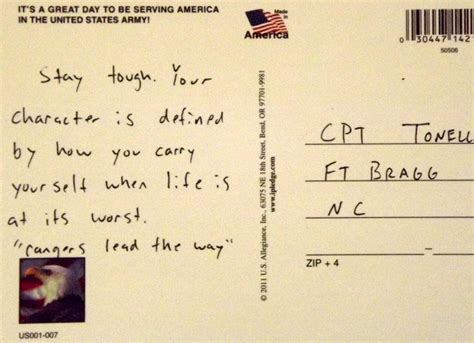 IT'S A GREAT DAY TO BE SERVING AMERICA
IN THE UNITED STATES ARMY!
Made in
America
0 30447 142
50506
Stay tough. Your
character is defined
by how you carry
yourself when life is
at its worst.
"rangers lead the way"
US001-007
© 2011 U.S. Allegiance, Inc., 63075 NE 18th Street, Bend, OR 97701-9981
www.ipledge.com
CPT TONELL
FT BRAGG
NC
ZIP + 4